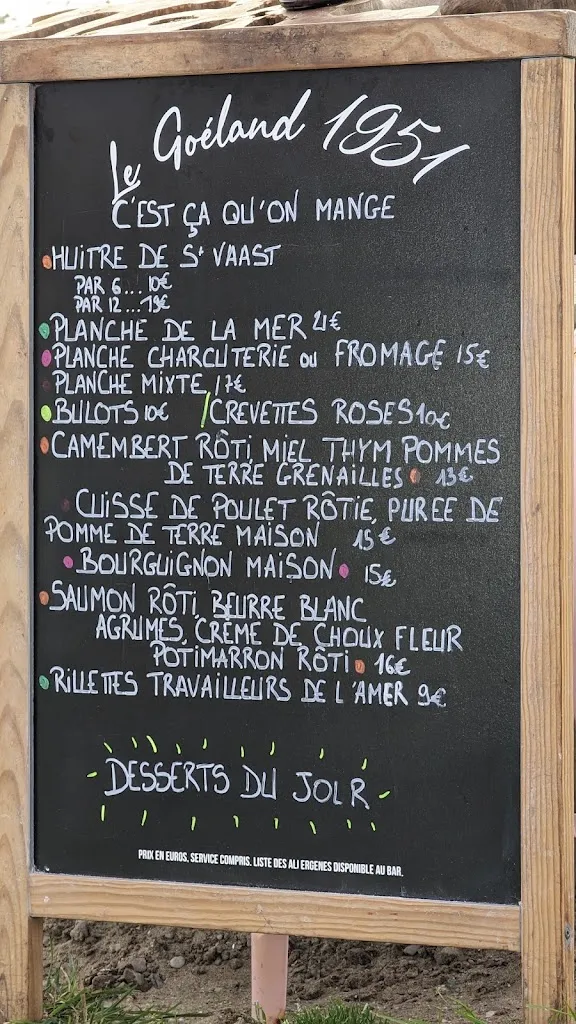 Le Goéland 1951
C'EST ÇA QU'ON MANGE
HUITRE DE St VAAST
PAR 6... 10€
PAR 12...19€
PLANCHE DE LA MER 21€
PLANCHE CHARCUTERIE ou FROMAGE 15€
PLANCHE MIXTE 17€
BULOTS 10€ / CREVETTES ROSES 10€
CAMEMBERT RÔTI, MIEL THYM POMMES
DE TERRE GRENAILLES 13€
CUISSE DE POULET RÔTIE, PUREE DE
POMME DE TERRE MAISON 15€
BOURGUIGNON MAISON 15€
SAUMON RÔTI, BEURRE BLANC
AGRUMES, CRÈME DE CHOUX FLEUR
POTIMARRON RÔTI 16€
RILLETTES TRAVAILLEURS DE L'AMER 9€
DESSERTS DU JOUR
PRIX EN EUROS, SERVICE COMPRIS. LISTE DES ALLERGENES DISPONIBLE AU BAR.